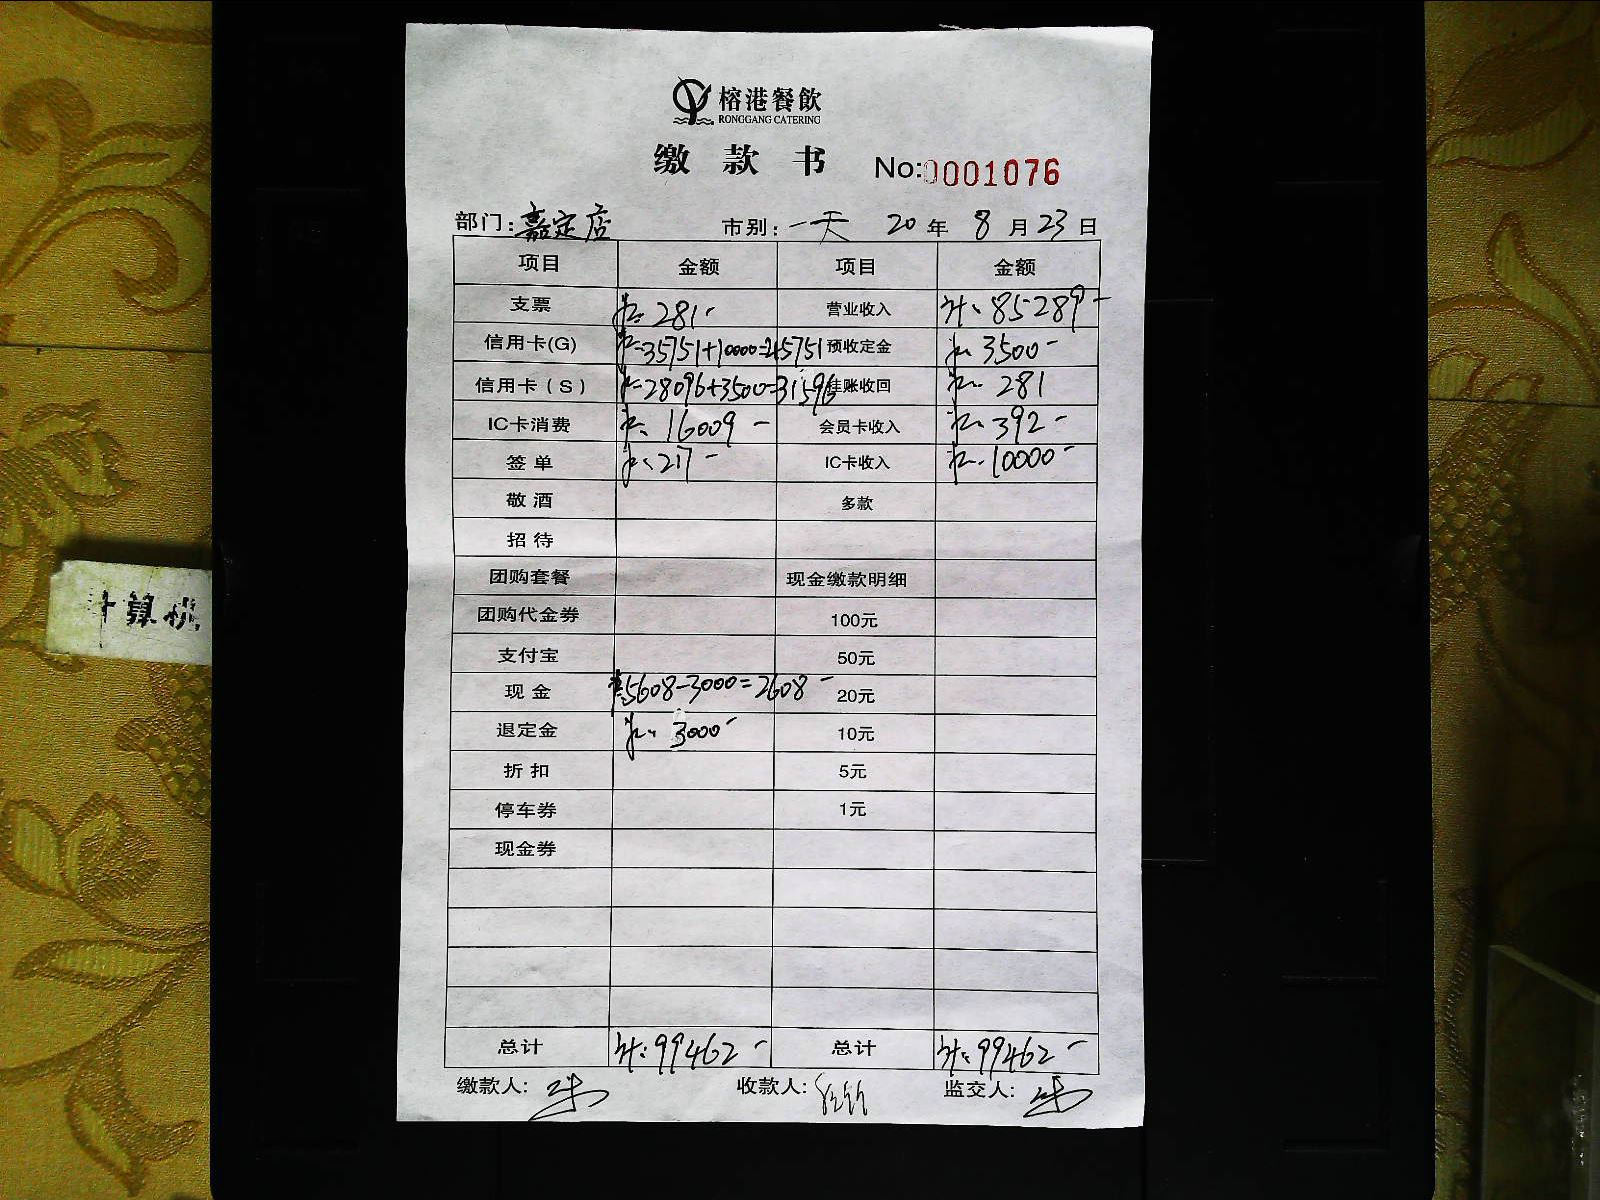 榕港餐飲
RONGGANG CATERING
缴款书 No:0001076
部门:嘉定店 市别:一天 20年8月23日
项目 金额 项目 金额
支票 281- 营业收入 计:85289-
信用卡(G) 35751+10000=45751 预收定金 3500-
信用卡(S) 28096+3500=31596 挂账收回 281
IC卡消费 16009- 会员卡收入 392-
签单 217- IC卡收入 10000-
敬酒 多款
招待
团购套餐 现金缴款明细
团购代金券 100元
支付宝 50元
现金 5608-3000=2608- 20元
退定金 3000- 10元
折扣 5元
停车券 1元
现金券
总计 计:99462- 总计 计:99462-
缴款人: 收款人: 监交人:
计算机